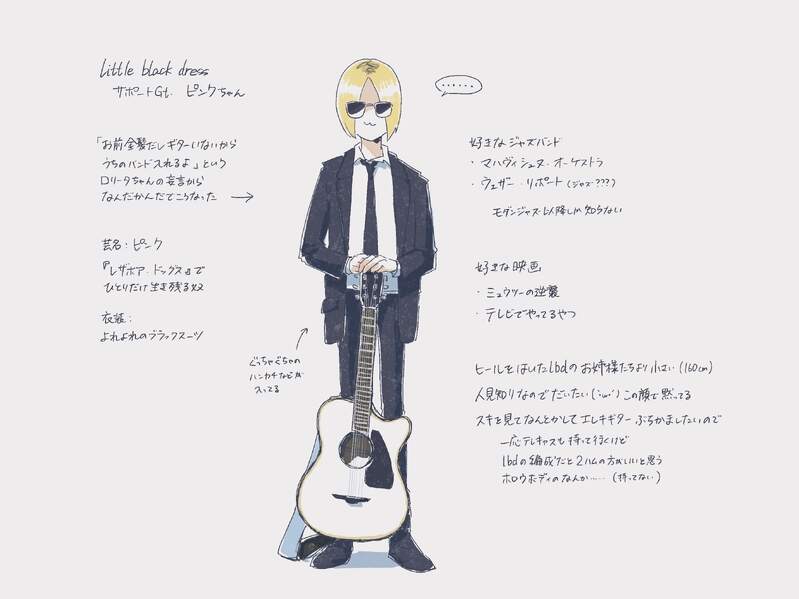 little black dress
サポートGt. ピンクちゃん
「お前金髪だしギターいないから
うちのバンド入れるよ」という
ロリータちゃんの妄言から
なんだかんだでこうなった →
芸名・ピンク
『レザボア・ドッグス』で
ひとりだけ生き残る奴
衣装:
よれよれのブラックスーツ
ぐっちゃぐちゃの
ハンカチなどが
入ってる
……
好きなジャズバンド
・マハヴィシュヌ・オーケストラ
・ウェザー・リポート(ジャズ???)
モダンジャズ以降しか知らない
好きな映画
・ミュウツーの逆襲
・テレビでやってるやつ
ヒールをはいたlbdのお姉様たちより小さい(160cm)
人見知りなのでだいたい(´・ω・`)この顔で黙ってる
スキを見てなんとかしてエレキギターぶちかましたいので
一応テレキャスも持って行くけど
lbdの編成だと2ハムの方がいいと思う
ホロウボディのなんか……(持ってない)